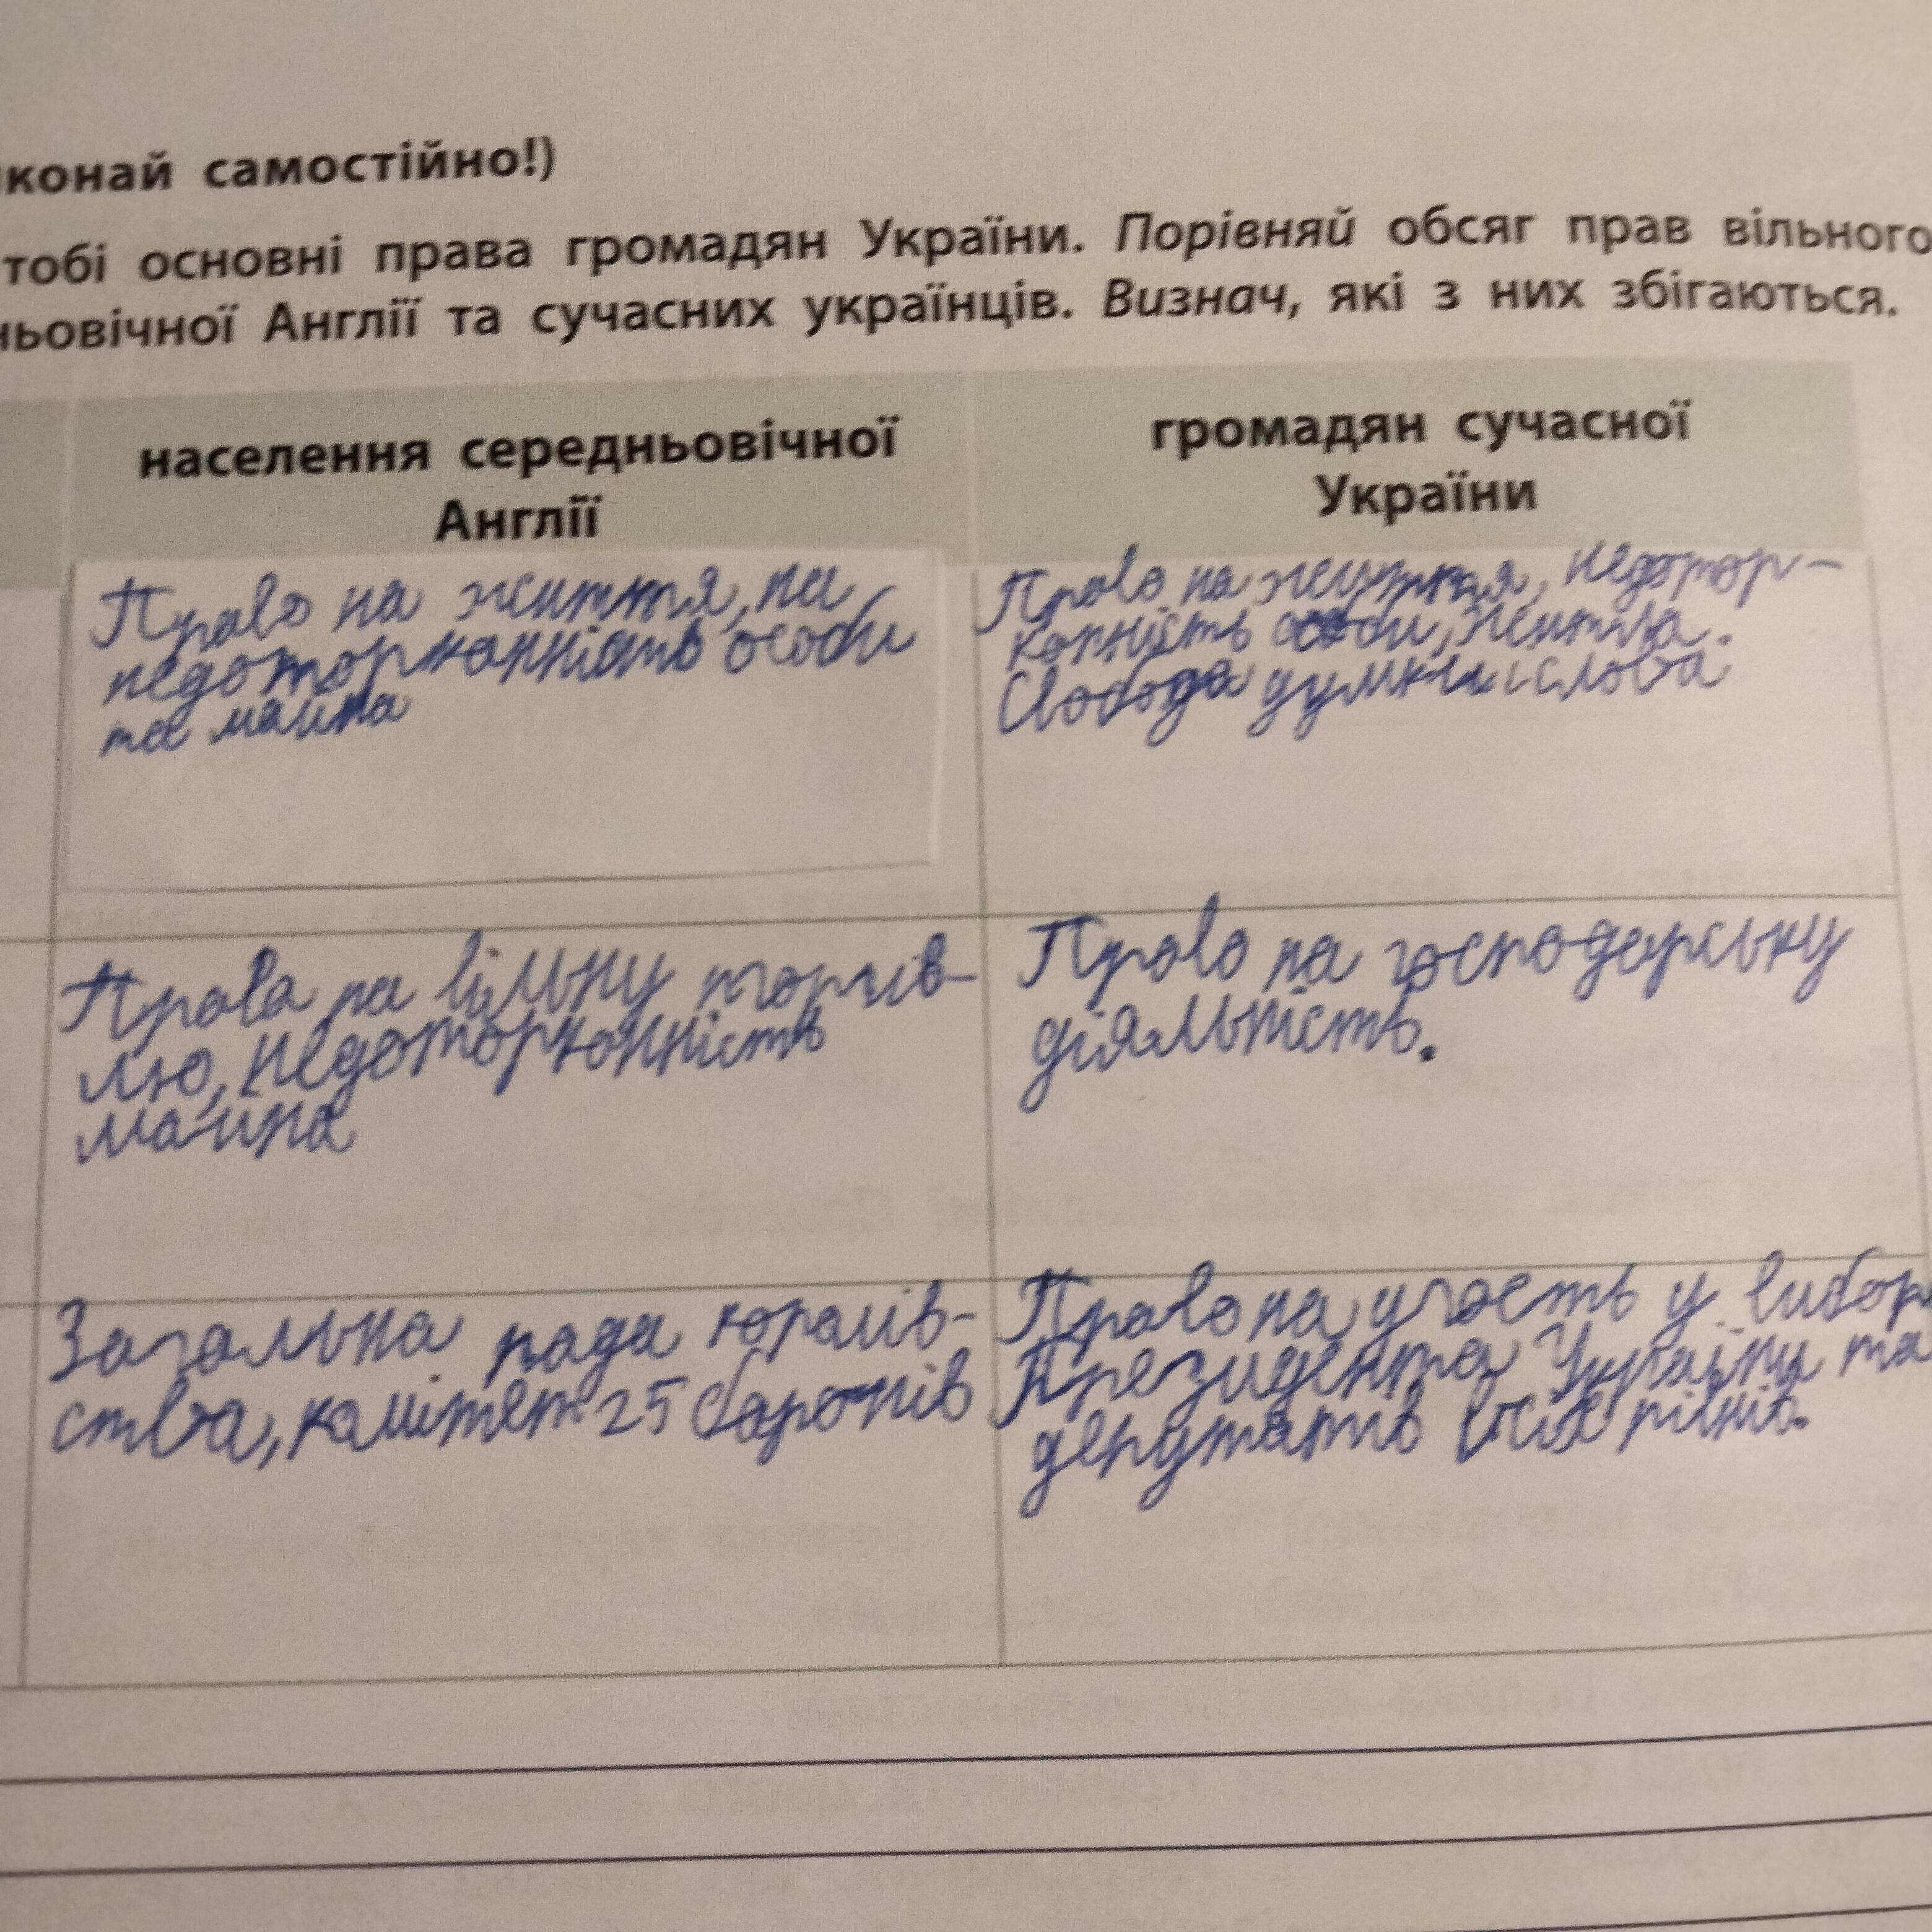 конай самостійно!)
тобі основні права громадян України. Порівняй обсяг прав вільного
ньовічної Англії та сучасних українців. Визнач, які з них збігаються.
населення середньовічної
Англії
громадян сучасної
України
Право на життя, на
недоторканність особи
та майна
Право на життя, недотор-
канність особи, житла.
Свобода думки і слова
Права на вільну торгів-
лю, недоторканність
майна
Право на господарську
діяльність.
Загальна рада королів-
ства, комітет 25 баронів
Право на участь у вибор
Президента України та
депутатів всіх рівнів.